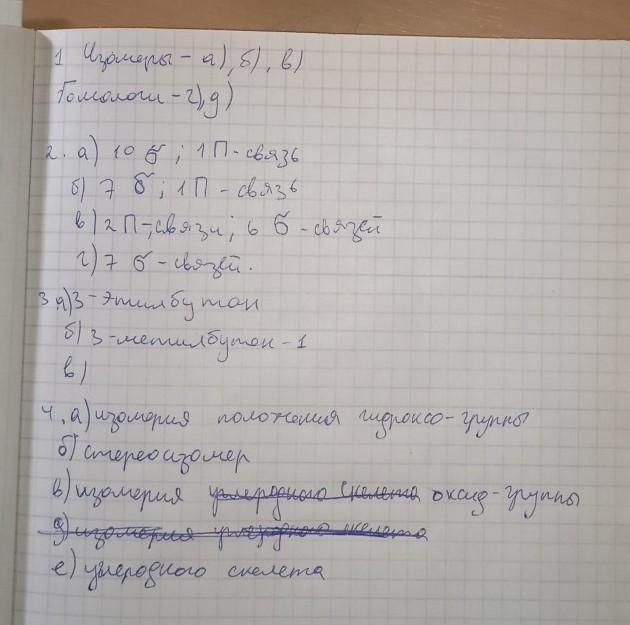 1 Изомеры - а), б), в)
Гомологи - г), д)
2. а) 10 б; 1 П-связь
б) 7 б; 1 П - связь
в) 2 П-связи; 6 б - связей
г) 7 б - связей.
3 а) 3-этилбутан
б) 3-метилбутан-1
в)
4. а) изомерия положения гидроксо-группы
б) стереоизомер
в) изомерия углеродного скелета оксид-группы
д) изомерия углеродного скелета
е) углеродного скелета